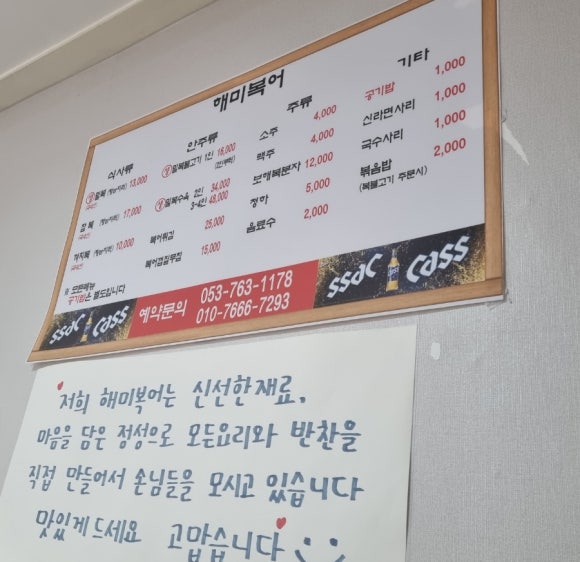 해미복어
식사류
생 밀복 (맑은/지리) 13,000
참복 (맑은/지리) 17,000
까치복 (맑은/지리) 10,000
※ 모든메뉴
공기밥은 별도입니다
안주류
생 밀복불고기 1인 16,000
생 밀복수육 2인 34,000
3~4인 48,000
복어튀김 25,000
복어껍질무침 15,000
주류
소주 4,000
맥주 4,000
보해복분자 12,000
청하 5,000
음료수 2,000
기타
공기밥 1,000
신라면사리 1,000
국수사리 1,000
볶음밥 2,000
(복불고기 주문시)
ssac cass
예약문의 053-763-1178
010-7666-7293
ssac cass
저희 해미복어는 신선한재료,
마음을 담은 정성으로 모든요리와 반찬을
직접 만들어서 손님들을 모시고 있습니다
맛있게드세요 고맙습니다